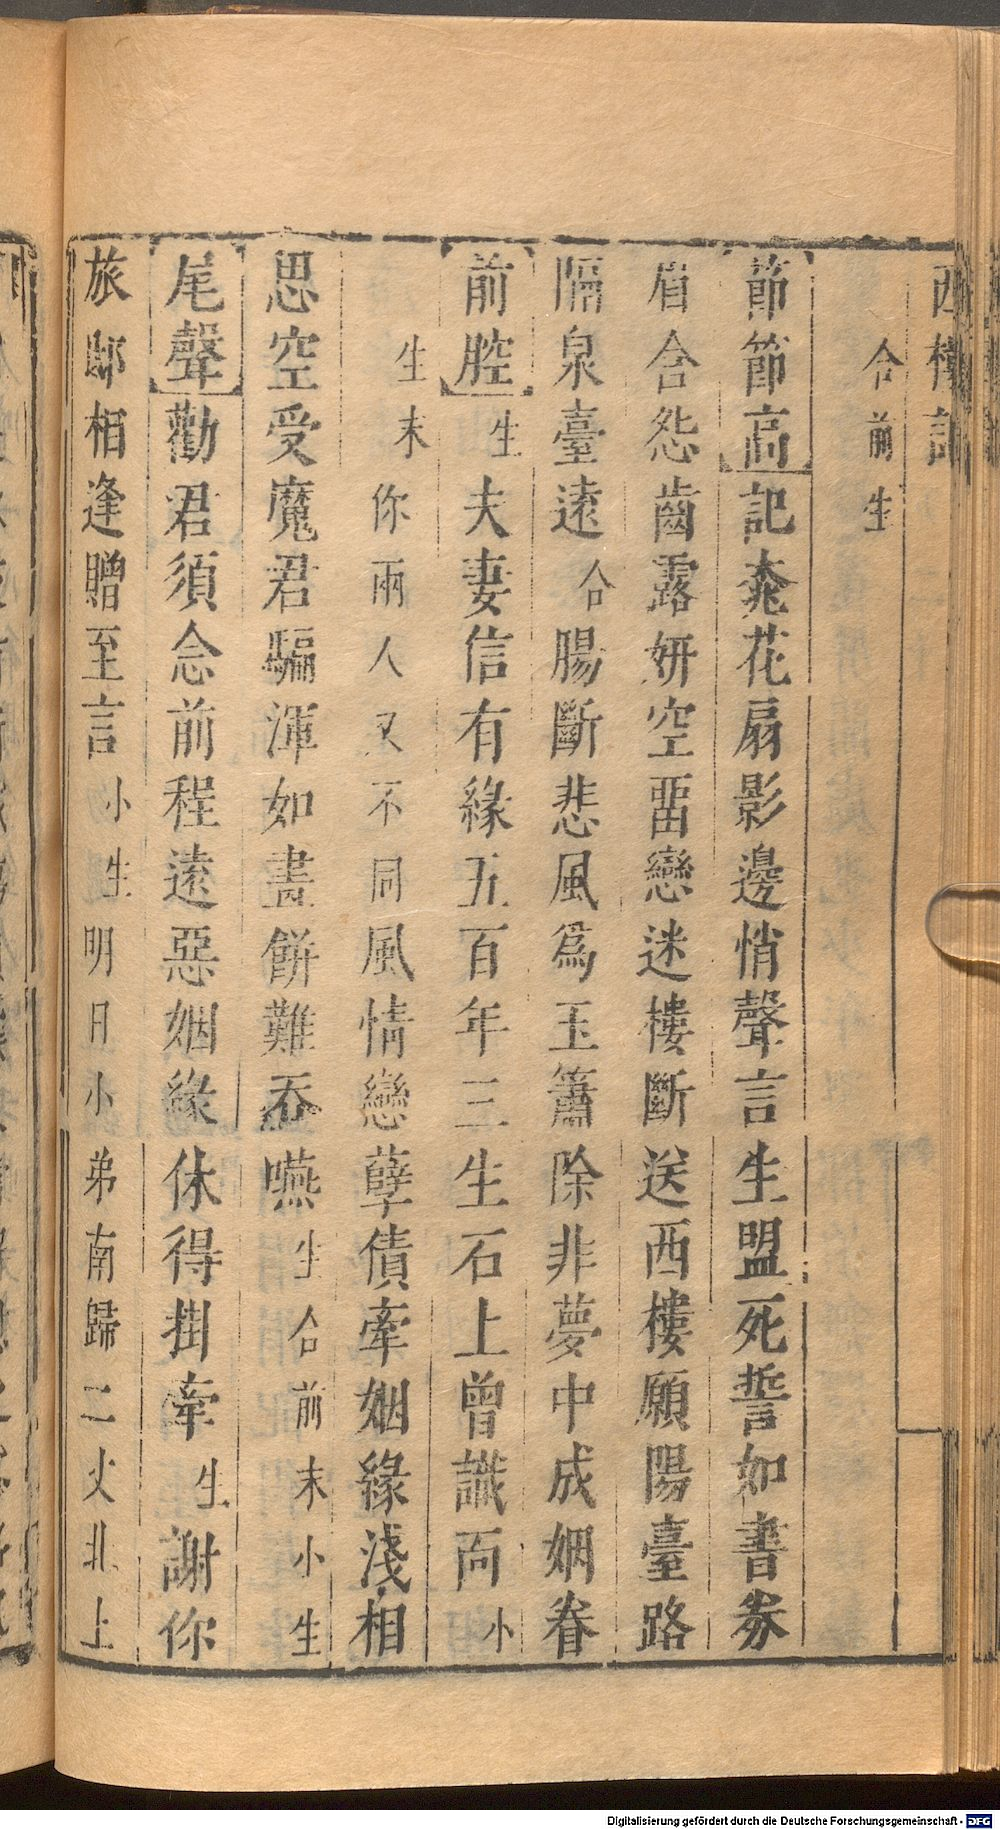 西樓記
合前生
節節高記桃花扇影邊悄聲言生盟死誓如書券
眉含怨齒露妍空留戀迷樓斷送西樓願陽臺路
隔泉臺遠合腸斷悲風爲玉簫除非夢中成姻眷
前腔生夫妻信有緣五百年三生石上曾識面小
生末你兩人又不同風情戀孽債牽姻緣淺相
思空受魔君騙渾如畫餅難吞嚥生合前末小生
尾聲勸君須念前程遠惡姻緣休得掛牽生謝你
旅邸相逢贈至言小生明日小弟南歸二丈北上
Digitalisierung gefördert durch die Deutsche Forschungsgemeinschaft - DFG